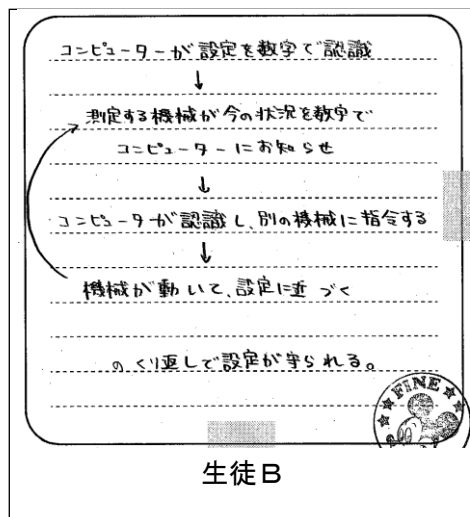 コンピューターが設定を数字で認識
↓
測定する機械が今の状況を数字で
コンピューターにお知らせ
↓
コンピュータが認識し、別の機械に指令する
↓
機械が動いて、設定に近づく
のくり返しで設定が守られる。
FINE
生徒B